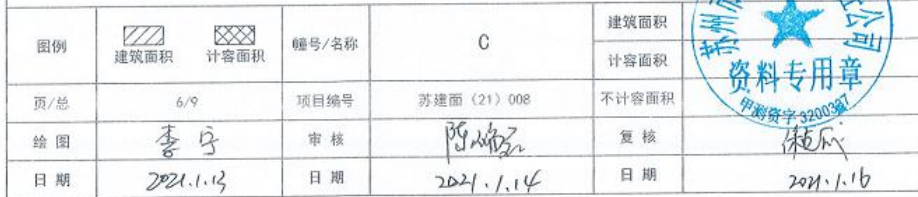 图例 建筑面积 计容面积 幢号/名称 C 建筑面积
计容面积
页/总 6/9 项目编号 苏建面（21）008 不计容面积
绘图 李宁 审核 复核
日期 2021.1.13 日期 2021.1.14 日期 2021.1.16
苏州 公司
资料专用章
甲测资字3200387